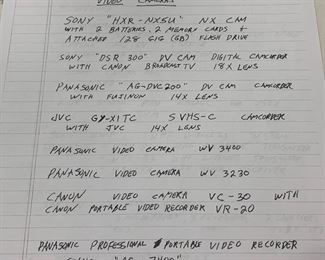 VIDEO CAMERAS
SONY "HXR-NX5U" NX CAM
WITH 2 BATTERIES, 2 MEMORY CARDS +
ATTACHED 128 GIG (GB) FLASH DRIVE
SONY "DSR 300" DV CAM DIGITAL CAMCORDER
WITH CANON BROADCAST TV 18X LENS
PANASONIC "AG-DVC200" DV CAM CAMCORDER
WITH FUJINON 14X LENS
JVC GY-X1TC SVHS-C CAMCORDER
WITH JVC 14X LENS
PANASONIC VIDEO CAMERA WV 3400
PANASONIC VIDEO CAMERA WV 3230
CANON VIDEO CAMERA VC-30 WITH
CANON PORTABLE VIDEO RECORDER VR-20
PANASONIC PROFESSIONAL PORTABLE VIDEO RECORDER